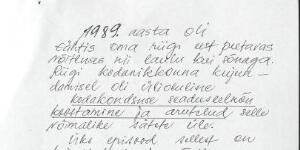 1989. aasta oli
tähtis oma riigi eest peetavas
võitluses nii laulu kui sõnaga.
Riigi kodanikkonna kujun-
damisel oli ürioluline
kodakondsuse seaduseelnõu
koostamine ja arutelud selle
võimalike sätete üle.
Üks episood sellest on